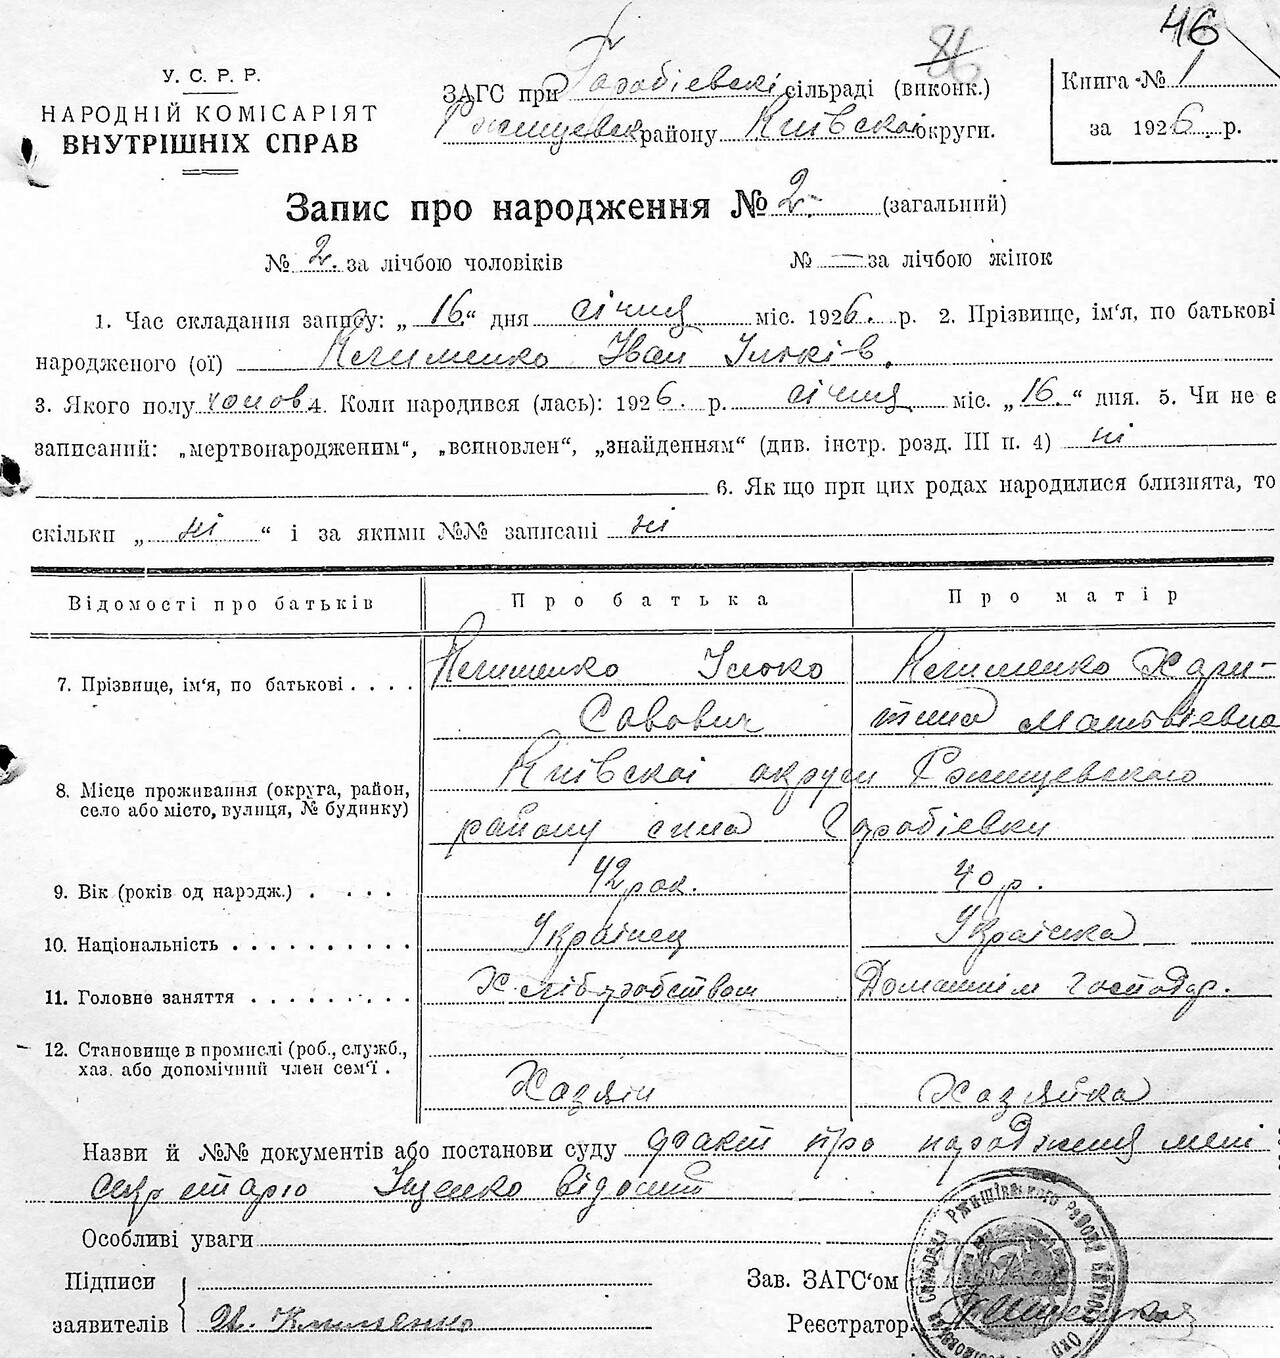 46
86
У. С. Р. Р.
НАРОДНІЙ КОМІСАРІЯТ
ВНУТРІШНІХ СПРАВ
ЗАГС при Горобіевскі сільраді (виконк.)
Ржищевск району Київскоі округи.
Книга № 1
за 1926 р.
Запис про народження № 2 (загальний)
№ 2. за лічбою чоловіків № — за лічбою жінок
1. Час складання запису: „16“ дня січня міс. 1926. р. 2. Прізвище, ім'я, по батькові
народженого (ої) Клименко Іван Ількі-в.
3. Якого полу чолов 4. Коли народився (лась): 1926. р. січня міс. „16.“ дня. 5. Чи не є
записаний: „мертвонародженим“, „всиновлен“, „знайденням“ (див. інстр. розд. III п. 4) ні
6. Як що при цих родах народилися близнята, то
скільки „ні“ і за якими №№ записані ні
Відомості про батьків Про батька Про матір
7. Прізвище, ім'я, по батькові . . . . Клименко Ілько Клименко Хари-
Савович тина Матвіевна
8. Місце проживання (округа, район, Київскоі округи Ржищевского
село або місто, вулиця, № будинку) району сила Горобіевки
9. Вік (років од народж.) . . . . 42 рок. 40 р.
10. Національність . . . . . . . . . . Українец Українка
11. Головне заняття . . . . . . . . . Хліборобством Домашнім господар.
12. Становище в промислі (роб., служб.,
хаз. або допомічний член сем'ї . Хазяін Хазяйка
Назви й №№ документів або постанови суду факт про народження мені
секретарю Іщенко відомий
Особливі уваги
Підписи Зав. ЗАГС'ом
заявителів И. Клименко Реєстратор